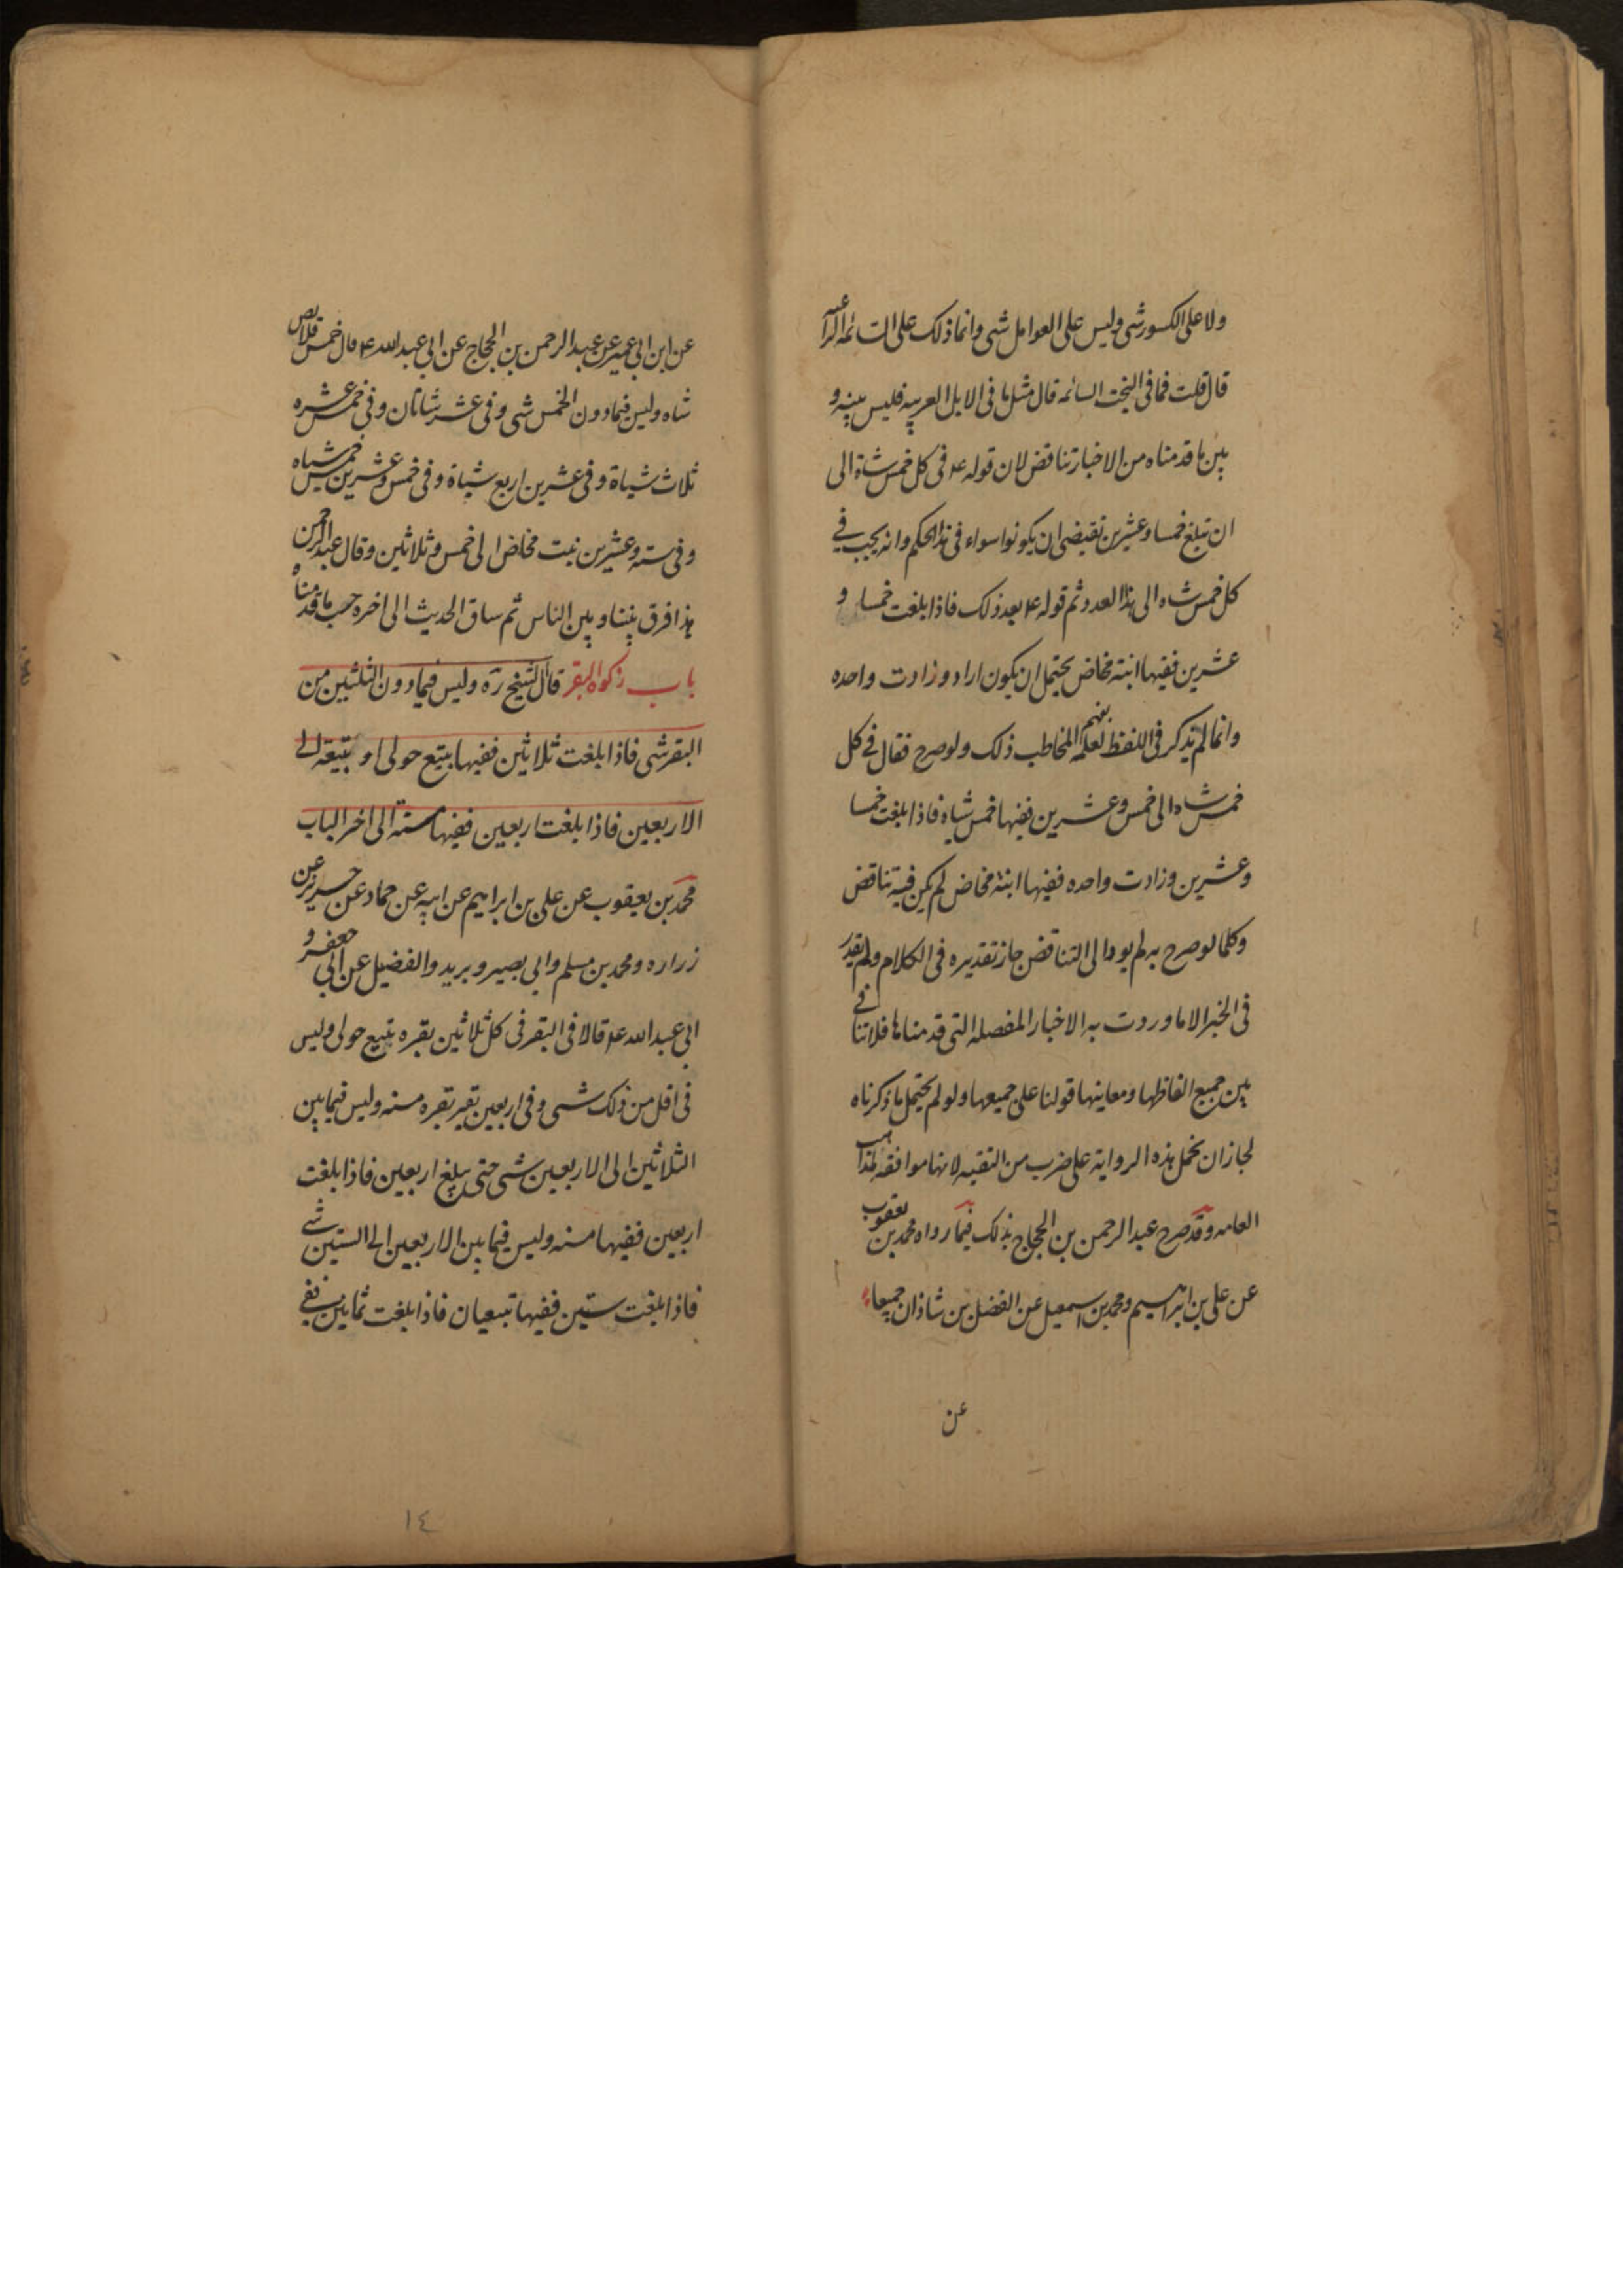 ولا على الكسور شى وليس على العوامل شى وانما ذلك على السائمه الراعيه
قال قلت فما فى البخت السائمه قال مثل ما فى الابل العربيه فليس بينه و
بين ما قدمناه من الاخبار تناقض لان قوله ع فى كل خمس شاة الى
ان تبلغ خمسا وعشرين تقيضى ان يكونوا سواء فى هذا الحكم وانه يجب فى
كل خمس شاه الى هذا العدد ثم قوله ع بعد ذلك فاذا بلغت خمسا و
عشرين ففيها ابنة مخاض يحتمل ان يكون اراد وزادت واحده
وانما لم يذكر فى اللفظ لعلمه بفهم المخاطب ذلك ولو صرح فقال فى كل
خمس شاه الى خمس وعشرين ففيها خمس شياه فاذا بلغت خمسا
وعشرين وزادت واحده ففيها ابنة مخاض لم يكن فيه تناقض
وكلما لو صرح به لم يود الى التناقض جاز تقديره فى الكلام ولم يقدر
فى الخبر الا ما وردت به الاخبار المفصله التى قدمناها فلا تنافى
بين جميع الفاظها ومعاينها قولنا على جميعها ولو لم يحتمل ما ذكرناه
لجاز ان يحمل هذه الرواية على ضرب من التقيه لانها موافقه لمذاهب
العامه وقد صرح عبد الرحمن بن الحجاج بذلك فيما رواه محمد بن يعقوب
عن على بن ابراهيم ومحمد بن اسمعيل عن الفضل بن شاذان جميعا
عن
عن ابن ابى عمير عن عبد الرحمن بن الحجاج عن ابى عبد الله ع قال خمس قلائص
شاه وليس فيما دون الخمس شى وفى عشر شاتان وفى خمس عشره
ثلاث شياة وفى عشرين اربع شياة وفى خمس وعشرين خمس شياه
وفى سته وعشرين بنت مخاض الى خمس وثلاثين وقال عبد الرحمن
هذا فرق بيننا وبين الناس ثم ساق الحديث الى اخره حسب ما قدمناه
باب زكوة البقر قال الشيخ ره وليس فيما دون الثلثين من
البقر شى فاذا بلغت ثلاثين ففيها تبيع حولى او تبيعة الى
الاربعين فاذا بلغت اربعين ففيها مسنه الى اخر الباب
محمد بن يعقوب عن على بن ابراهيم عن ابيه عن حماد عن حريز عن
زراره ومحمد بن مسلم وابى بصير وبريد والفضيل عن ابى جعفر و
ابى عبد الله ع قالا فى البقر فى كل ثلاثين بقره تبيع حولى وليس
فى اقل من ذلك شى وفى اربعين بقر بقره مسنه وليس فيما بين
الثلاثين الى الاربعين شى حتى يبلغ اربعين فاذا بلغت
اربعين ففيها مسنه وليس فيما بين الاربعين الى الستين شى
فاذا بلغت ستين ففيها تبيعان فاذا بلغت ثمانين ففى
١٤